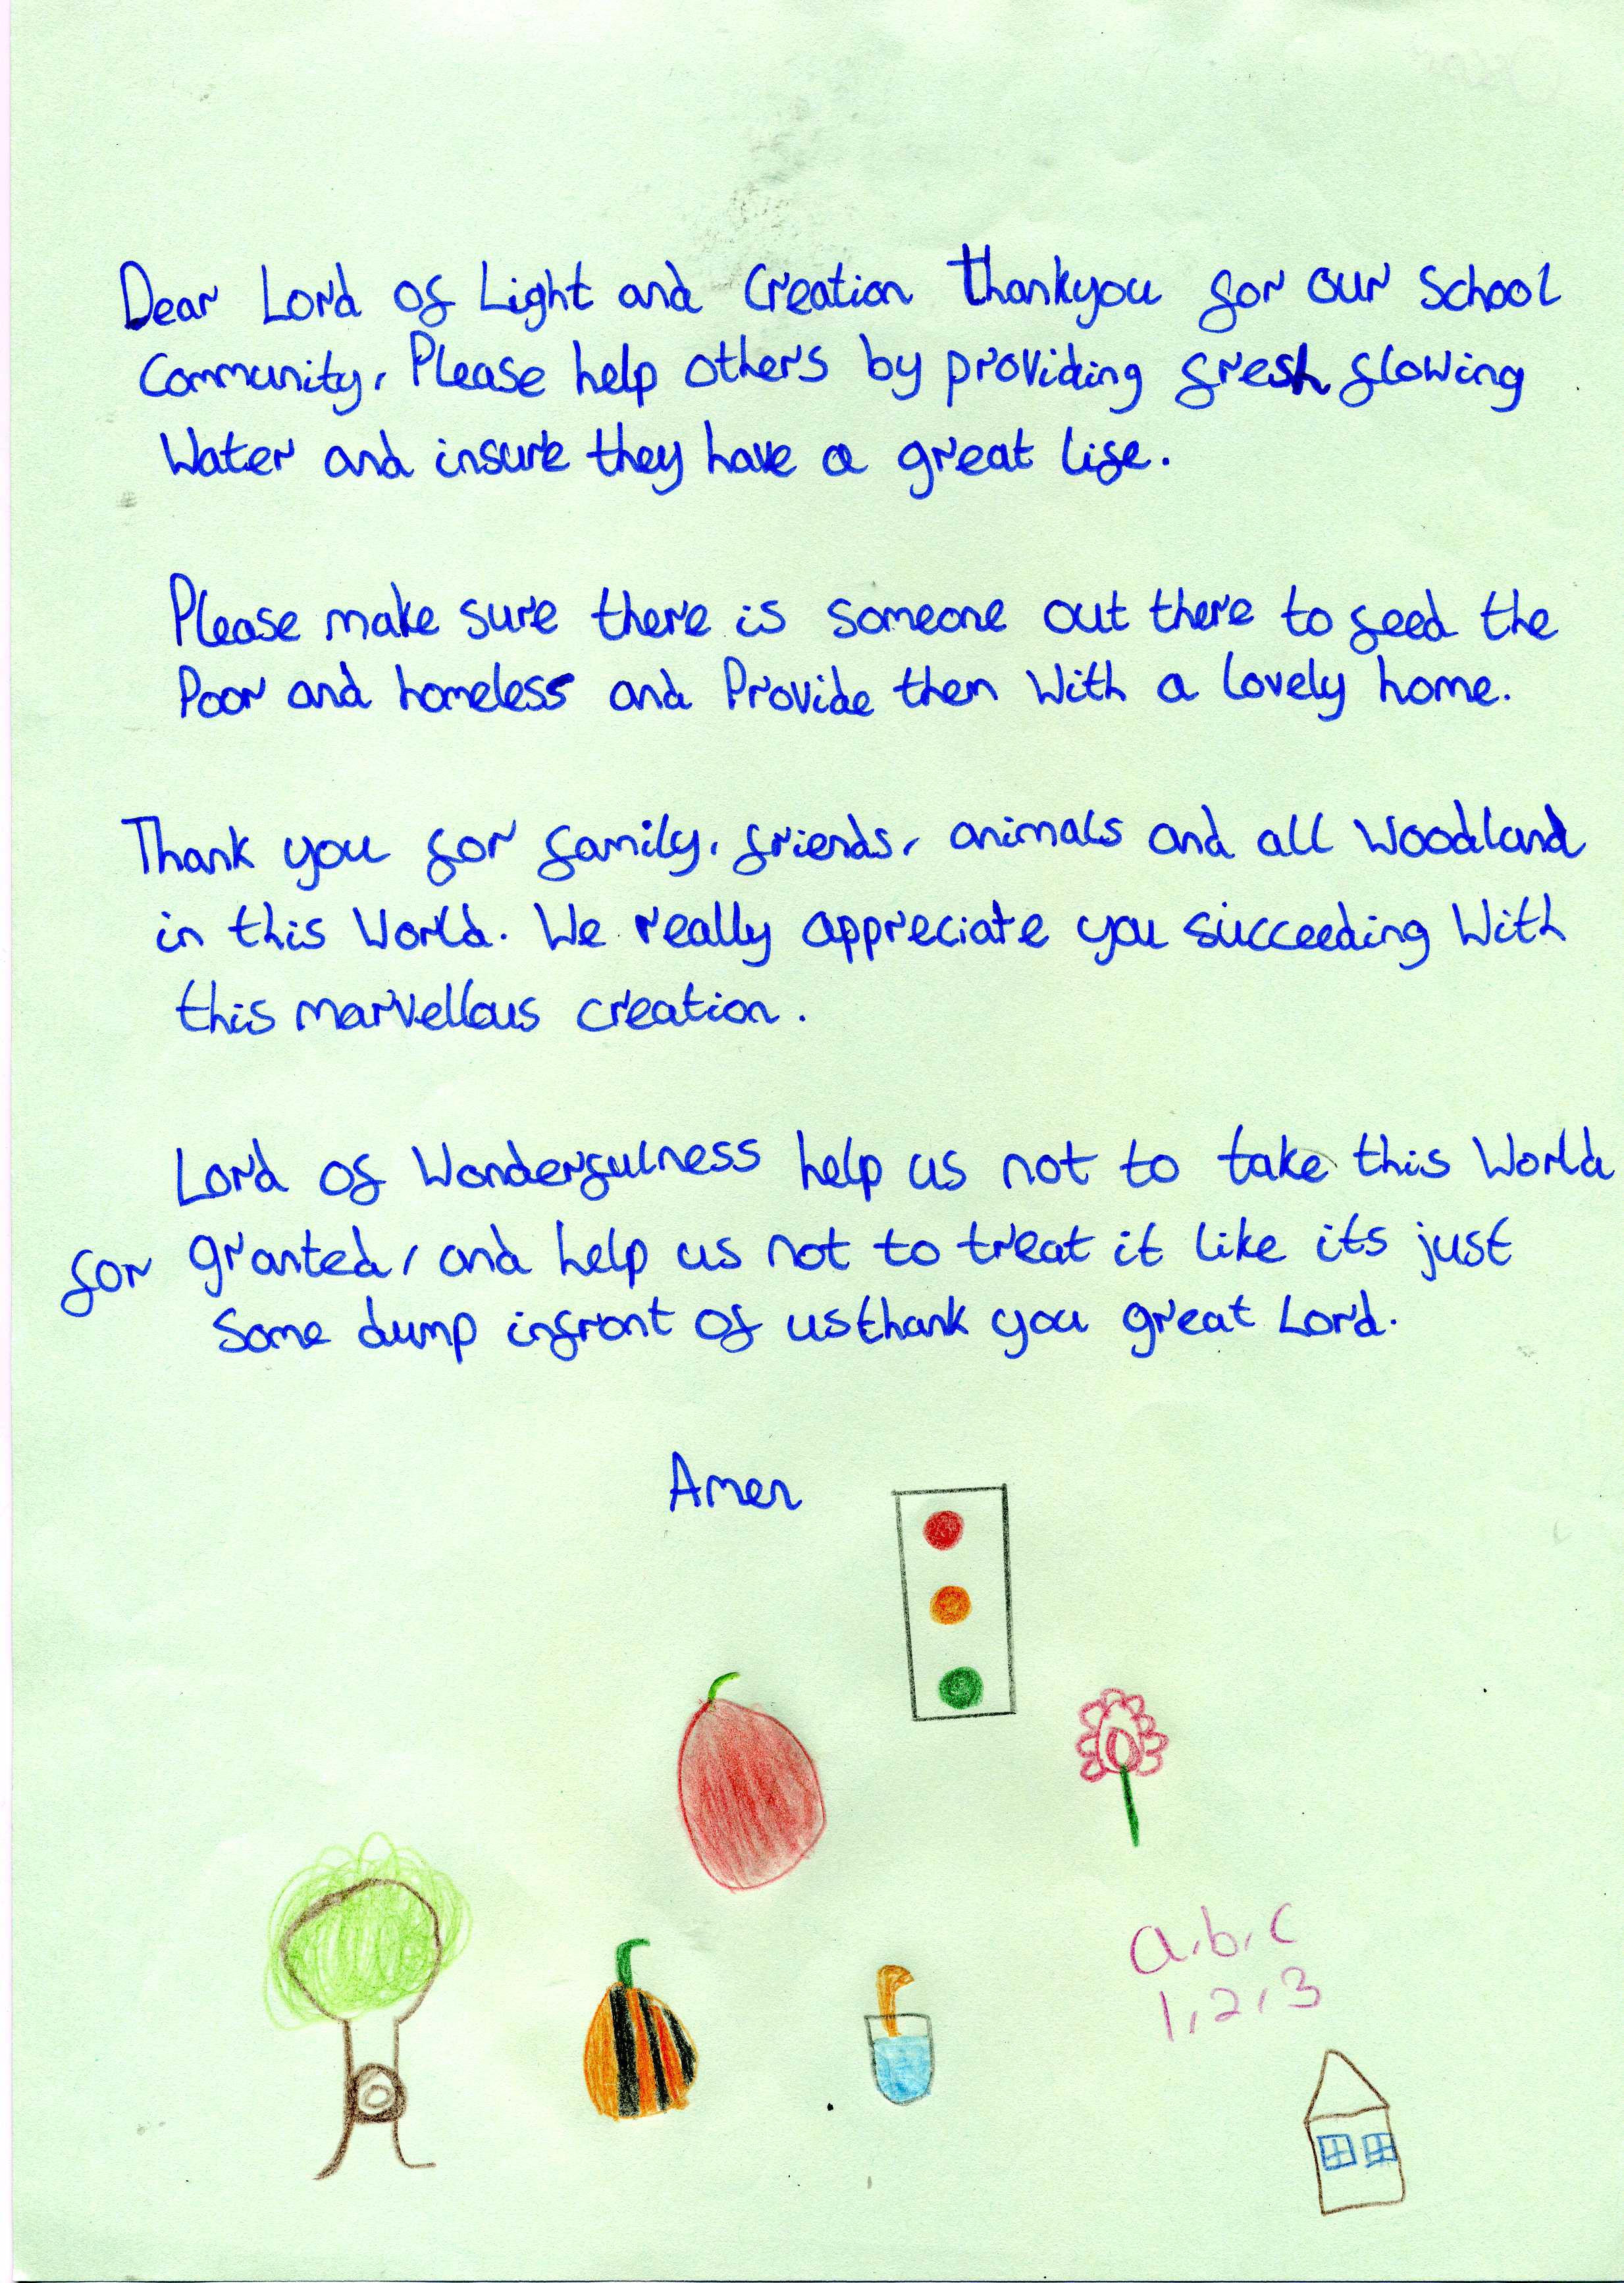 Dear Lord of Light and Creation thankyou for our School
Community, Please help others by providing fresh flowing
Water and insure they have a great life.
Please make sure there is someone out there to feed the
Poor and homeless and Provide them With a lovely home.
Thank you for family, friends, animals and all Woodland
in this World. We really appreciate you succeeding With
this marvellous creation.
Lord of Wonderfulness help us not to take this World
for granted, and help us not to treat it like its just
Some dump infront of us thank you great Lord.
Amen
a,b,c
1,2,3